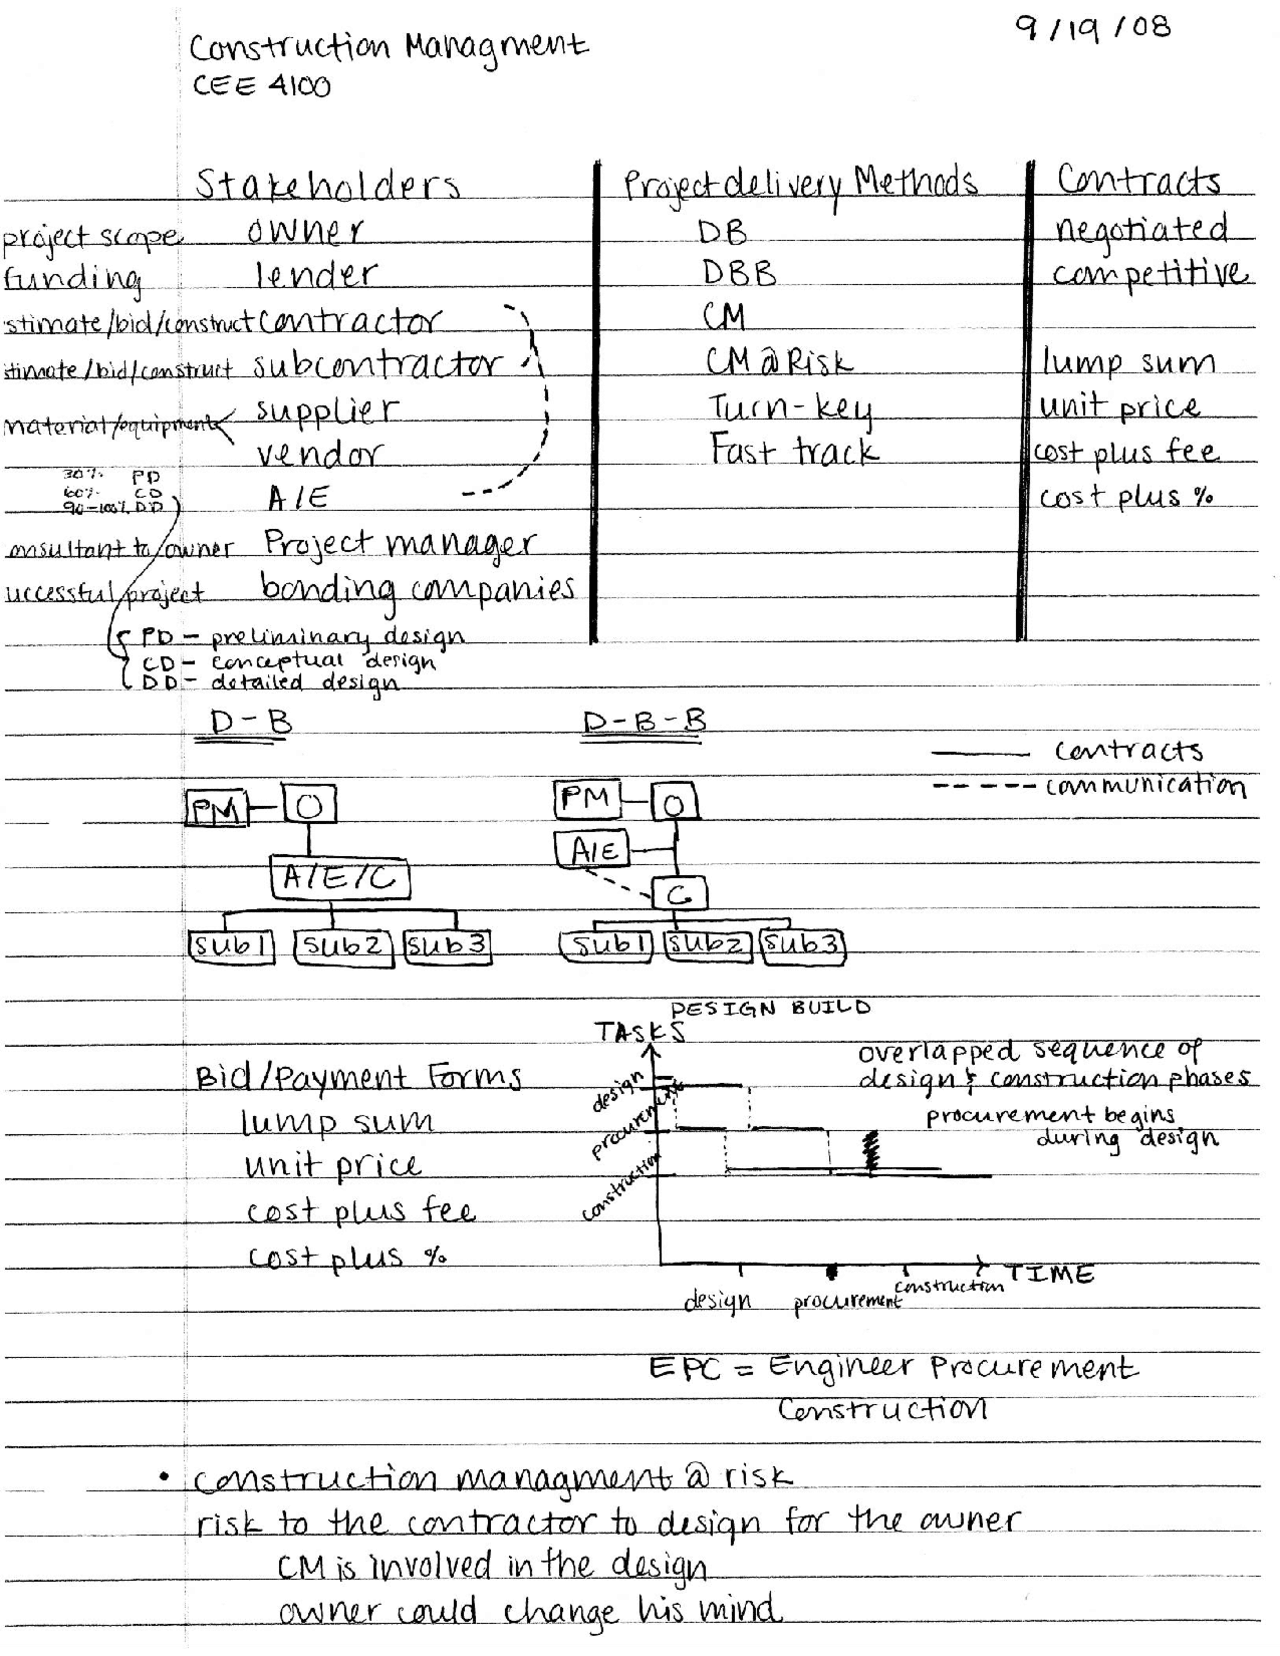 9/19/08
Construction Managment
CEE 4100
Stakeholders Project delivery Methods Contracts
project scope owner DB negotiated
funding lender DBB competitive
stimate/bid/construct contractor CM
timate/bid/construct subcontractor CM@Risk lump sum
material/equipment supplier Turn-key unit price
vendor Fast track cost plus fee
30% PD
60% CD
90-100% DD
A/E cost plus %
onsultant to/owner Project manager
uccessful project bonding companies
PD - preliminary design
CD - conceptual design
DD - detailed design
D-B D-B-B
contracts
communication
PM O PM O
A/E
A/E/C C
Sub1 Sub2 Sub3 Sub1 Sub2 Sub3
DESIGN BUILD
TASKS
overlapped sequence of
design & construction phases
procurement begins
during design
design
procurement
construction
Bid/Payment Forms
lump sum
unit price
cost plus fee
cost plus %
TIME
design procurement construction
EPC = Engineer Procurement
Construction
• construction managment @ risk
risk to the contractor to design for the owner
CM is involved in the design
owner could change his mind